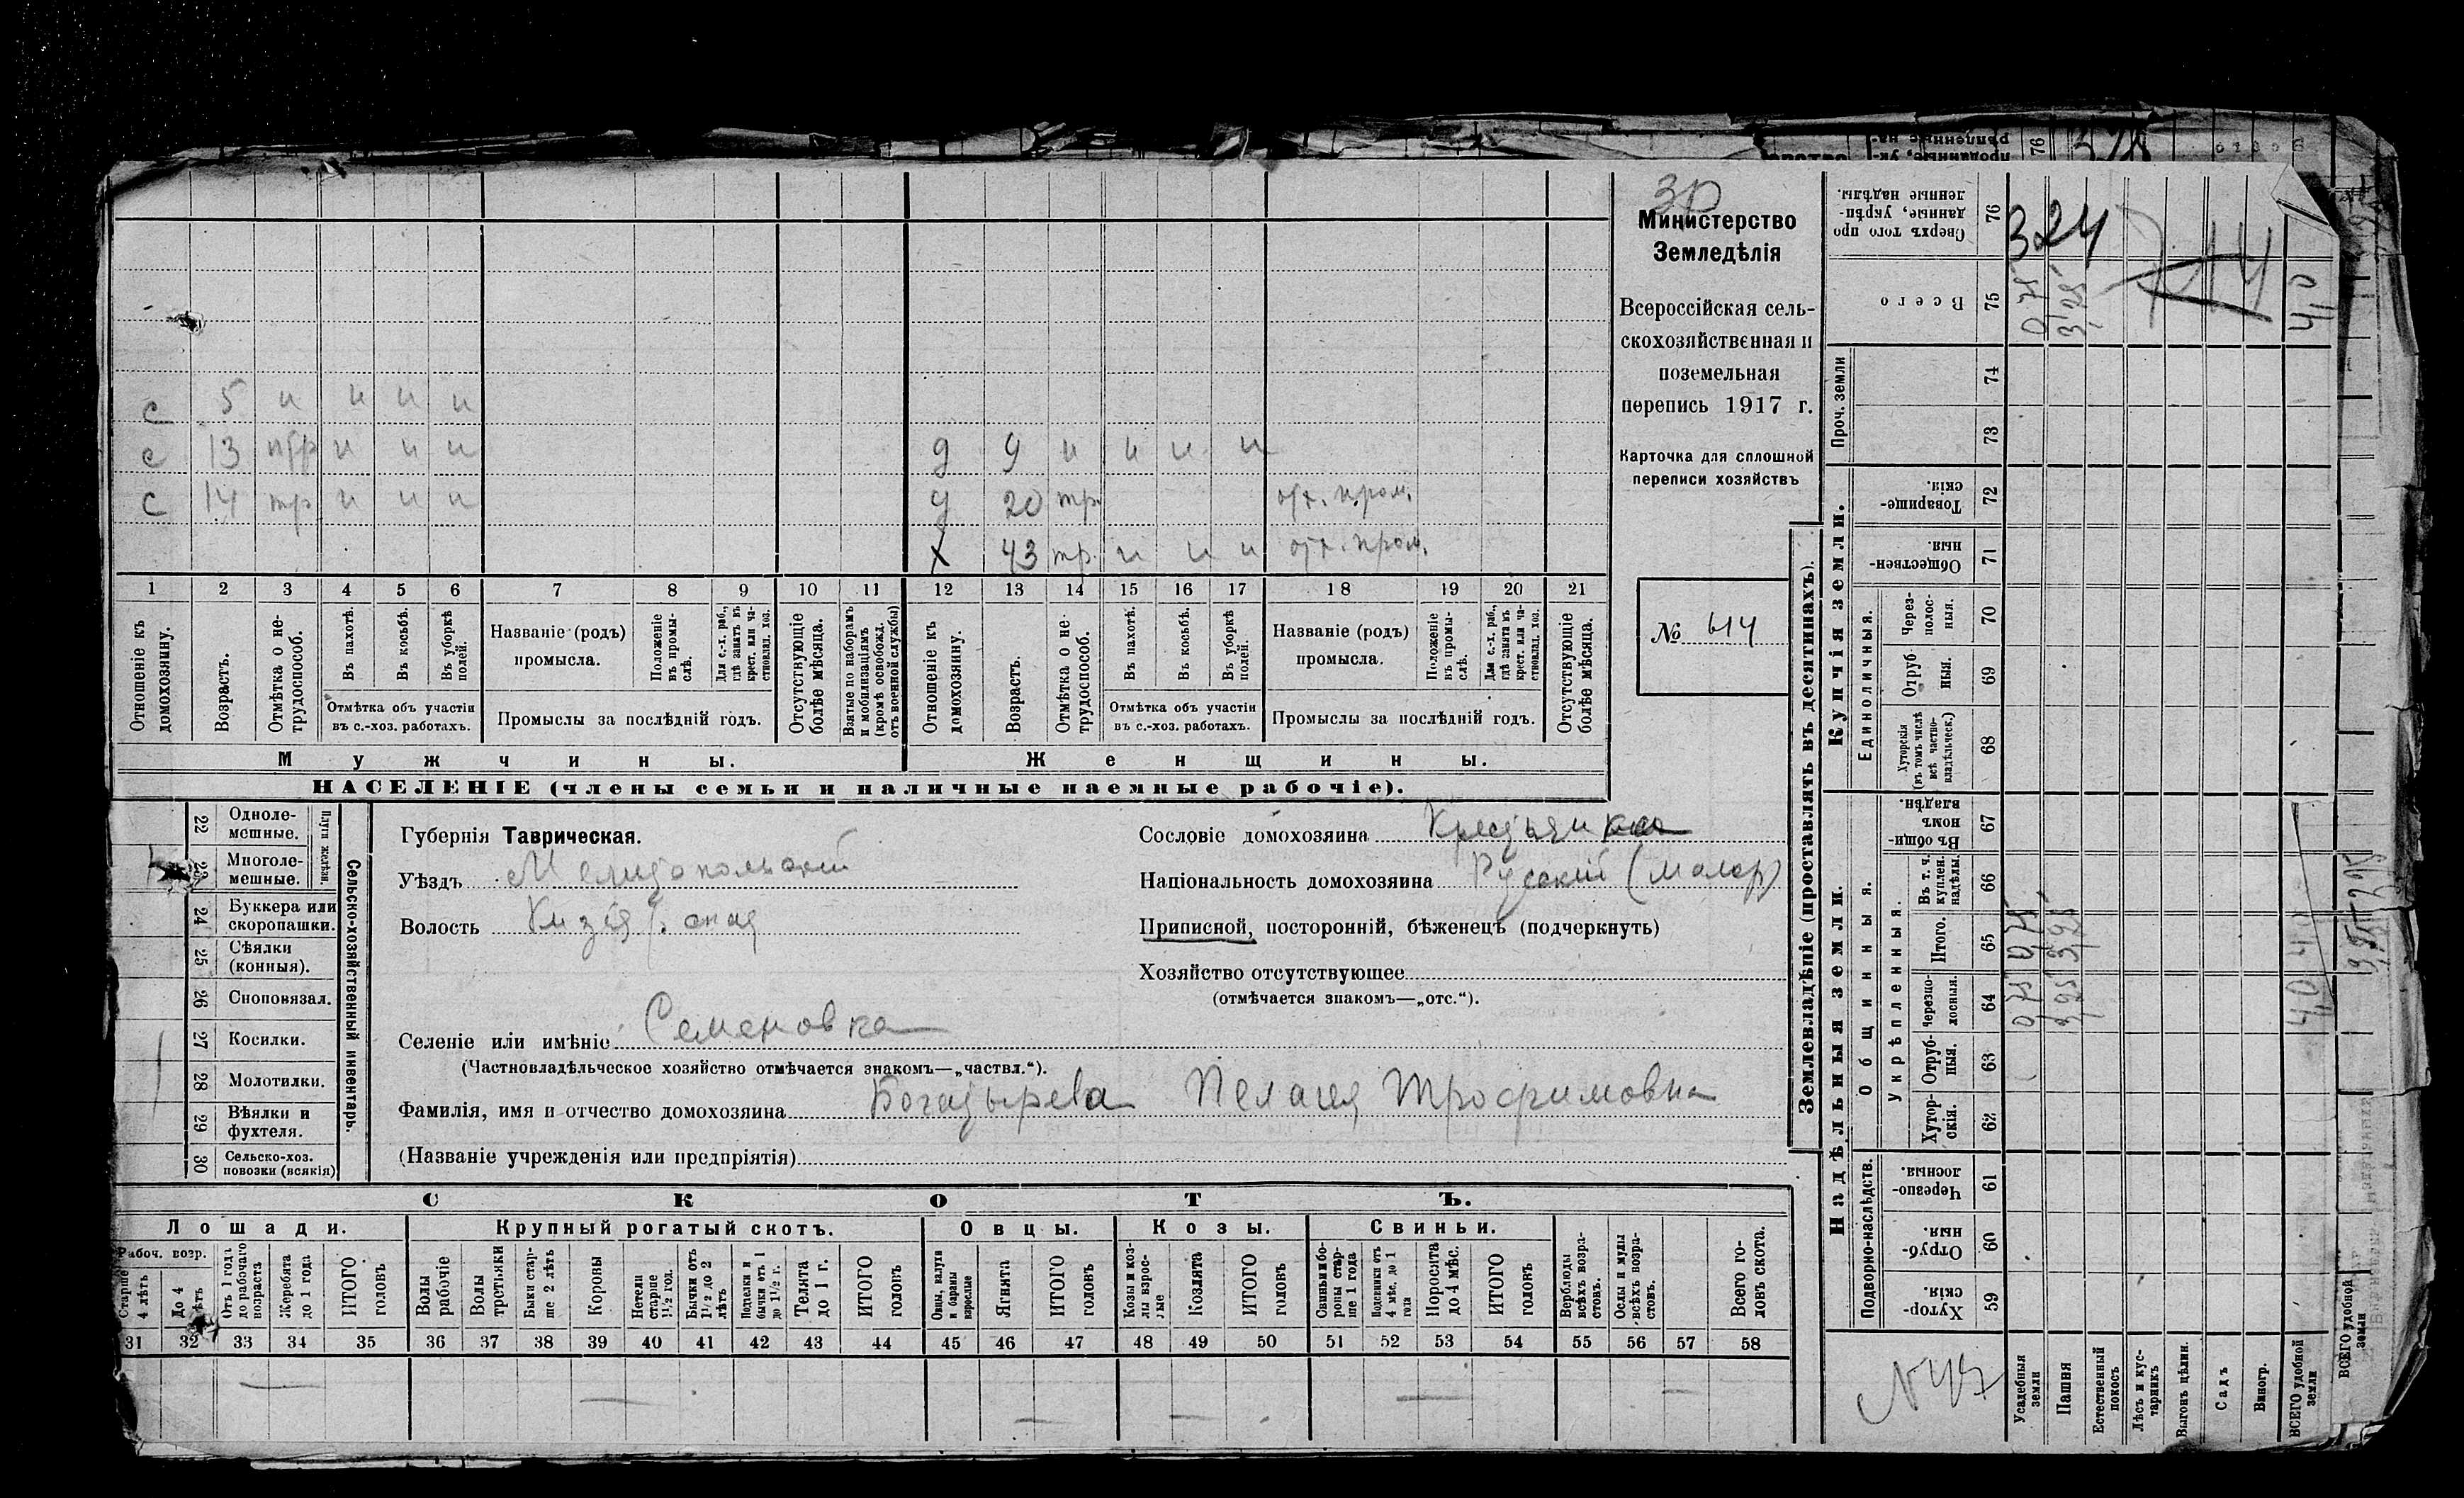 3р
Министерство
Земледѣлія
Всероссійская сель-
скохозяйственная и
поземельная
перепись 1917 г.
Карточка для сплошной
переписи хозяйствъ
№ 414
с 5 н н н н
с 13 пбр н н н
с 14 тр н н н
д 9 н н н н
д 20 тр. отх. пром.
х 43 тр. н н н отх. пром.
1 2 3 4 5 6 7 8 9 10 11 12 13 14 15 16 17 18 19 20 21
Отношеніе къ домохозяину.
Возрастъ.
Отмѣтка о не-трудоспособ.
Въ пахотѣ.
Въ косьбѣ.
Въ уборкѣ полей.
Отмѣтка объ участіи
въ с.-хоз. работахъ.
Названіе (родъ)
промысла.
Положеніе въ промы-слѣ.
Для с.-х. раб., гдѣ занятъ въ крест. или ча-стновлад. хоз.
Промыслы за послѣдній годъ.
Отсутствующіе болѣе мѣсяца.
Взятые по наборамъ и мобилизаціямъ (кромѣ освобожд. отъ военной службы)
Отношеніе къ домохозяину.
Возрастъ.
Отмѣтка о не-трудоспособ.
Въ пахотѣ.
Въ косьбѣ.
Въ уборкѣ полей.
Отмѣтка объ участіи
въ с.-хоз. работахъ.
Названіе (родъ)
промысла.
Положеніе въ промы-слѣ.
Для с.-х. раб., гдѣ занятъ въ крест. или ча-стновлад. хоз.
Промыслы за послѣдній годъ.
Отсутствующіе болѣе мѣсяца.
Мужчины. Женщины.
НАСЕЛЕНІЕ (члены семьи и наличные наемные рабочіе).
Сельско-хозяйственный инвентарь.
Плуги желѣзн.
22 Одноле-мешные.
23 Многоле-мешные.
24 Буккера или скоропашки.
25 Сѣялки (конныя).
26 Сноповязал.
27 Косилки.
28 Молотилки.
29 Вѣялки и фухтеля.
30 Сельско-хоз. повозки (всякія)
Губернія Таврическая.
Уѣздъ Мелитопольский
Волость Кизіяр. ская
Селеніе или имѣніе Семеновка
(Частновладѣльческое хозяйство отмѣчается знакомъ—„частвл.“).
Фамилія, имя и отчество домохозяина Богатырева Пелагея Трофимовна
(Названіе учрежденія или предпріятія)
Сословіе домохозяина Крестьянка
Національность домохозяина Русский (малор)
Приписной, посторонній, бѣженецъ (подчеркнуть)
Хозяйство отсутствующее
(отмѣчается знакомъ—„отс.“).
СКОТЪ.
Лошади. Крупный рогатый скотъ. Овцы. Козы. Свиньи.
Рабоч. возр.
Старше 4 лѣтъ
До 4 лѣтъ
Отъ 1 года до рабочаго возраста
Жеребята до 1 года
ИТОГО головъ
Волы рабочіе
Волы третьяки
Быки стар-ше 2 лѣтъ
Коровы
Нетели старше 1½ год.
Бычки отъ 1½ до 2 лѣтъ
Подтелки и бычки отъ 1 до 1½ г.
Телята до 1 г.
ИТОГО головъ
Овцы, валухи и бараны взрослые
Ягнята
ИТОГО головъ
Козы и коз-лы взрос-лые
Козлята
ИТОГО головъ
Свиньи и бо-ровы стар-ше 1 года
Подсвинки отъ 4 мѣс. до 1 года
Поросята до 4 мѣс.
ИТОГО головъ
Верблюды всѣхъ возра-стовъ.
Ослы и мулы всѣхъ возра-стовъ.
Всего го-ловъ скота.
31 32 33 34 35 36 37 38 39 40 41 42 43 44 45 46 47 48 49 50 51 52 53 54 55 56 57 58
— — — — — —
Землевладѣніе (проставлять въ десятинахъ).
Купчія земли.
Надѣльныя земли.
Единоличныя.
Общинныя.
Укрѣпленныя.
Подворно-наслѣдств.
Проч. земли
76 Сверхъ того про-данные, укрѣп-ленные надѣлы.
324
75 Всего
0,75 3,25 4,0
74
73
72 Товарище-скія.
71 Обществен-ныя.
70 Через-полос-ныя.
69 Отруб-ныя.
68 Хуторскія (въ томъ числѣ всѣ частно-владѣльческ.)
67 Въ общи-номъ владѣн.
66 Въ т. ч. куплен. надѣлы.
65 Итого.
0,75 3,25 4,0
64 Черезпо-лосныя.
0,75 3,25 4,0
63 Отруб-ныя.
62 Хутор-скія.
61 Черезпо-лосныя.
60 Отруб-ныя.
59 Хутор-скія.
Усадебныя земли
Пашня
Естественный покосъ
Лѣсъ и кус-тарникъ
Выгонъ цѣлин.
Садъ
Виногр.
ВСЕГО удобной земли
ВСЕГО удобной земли